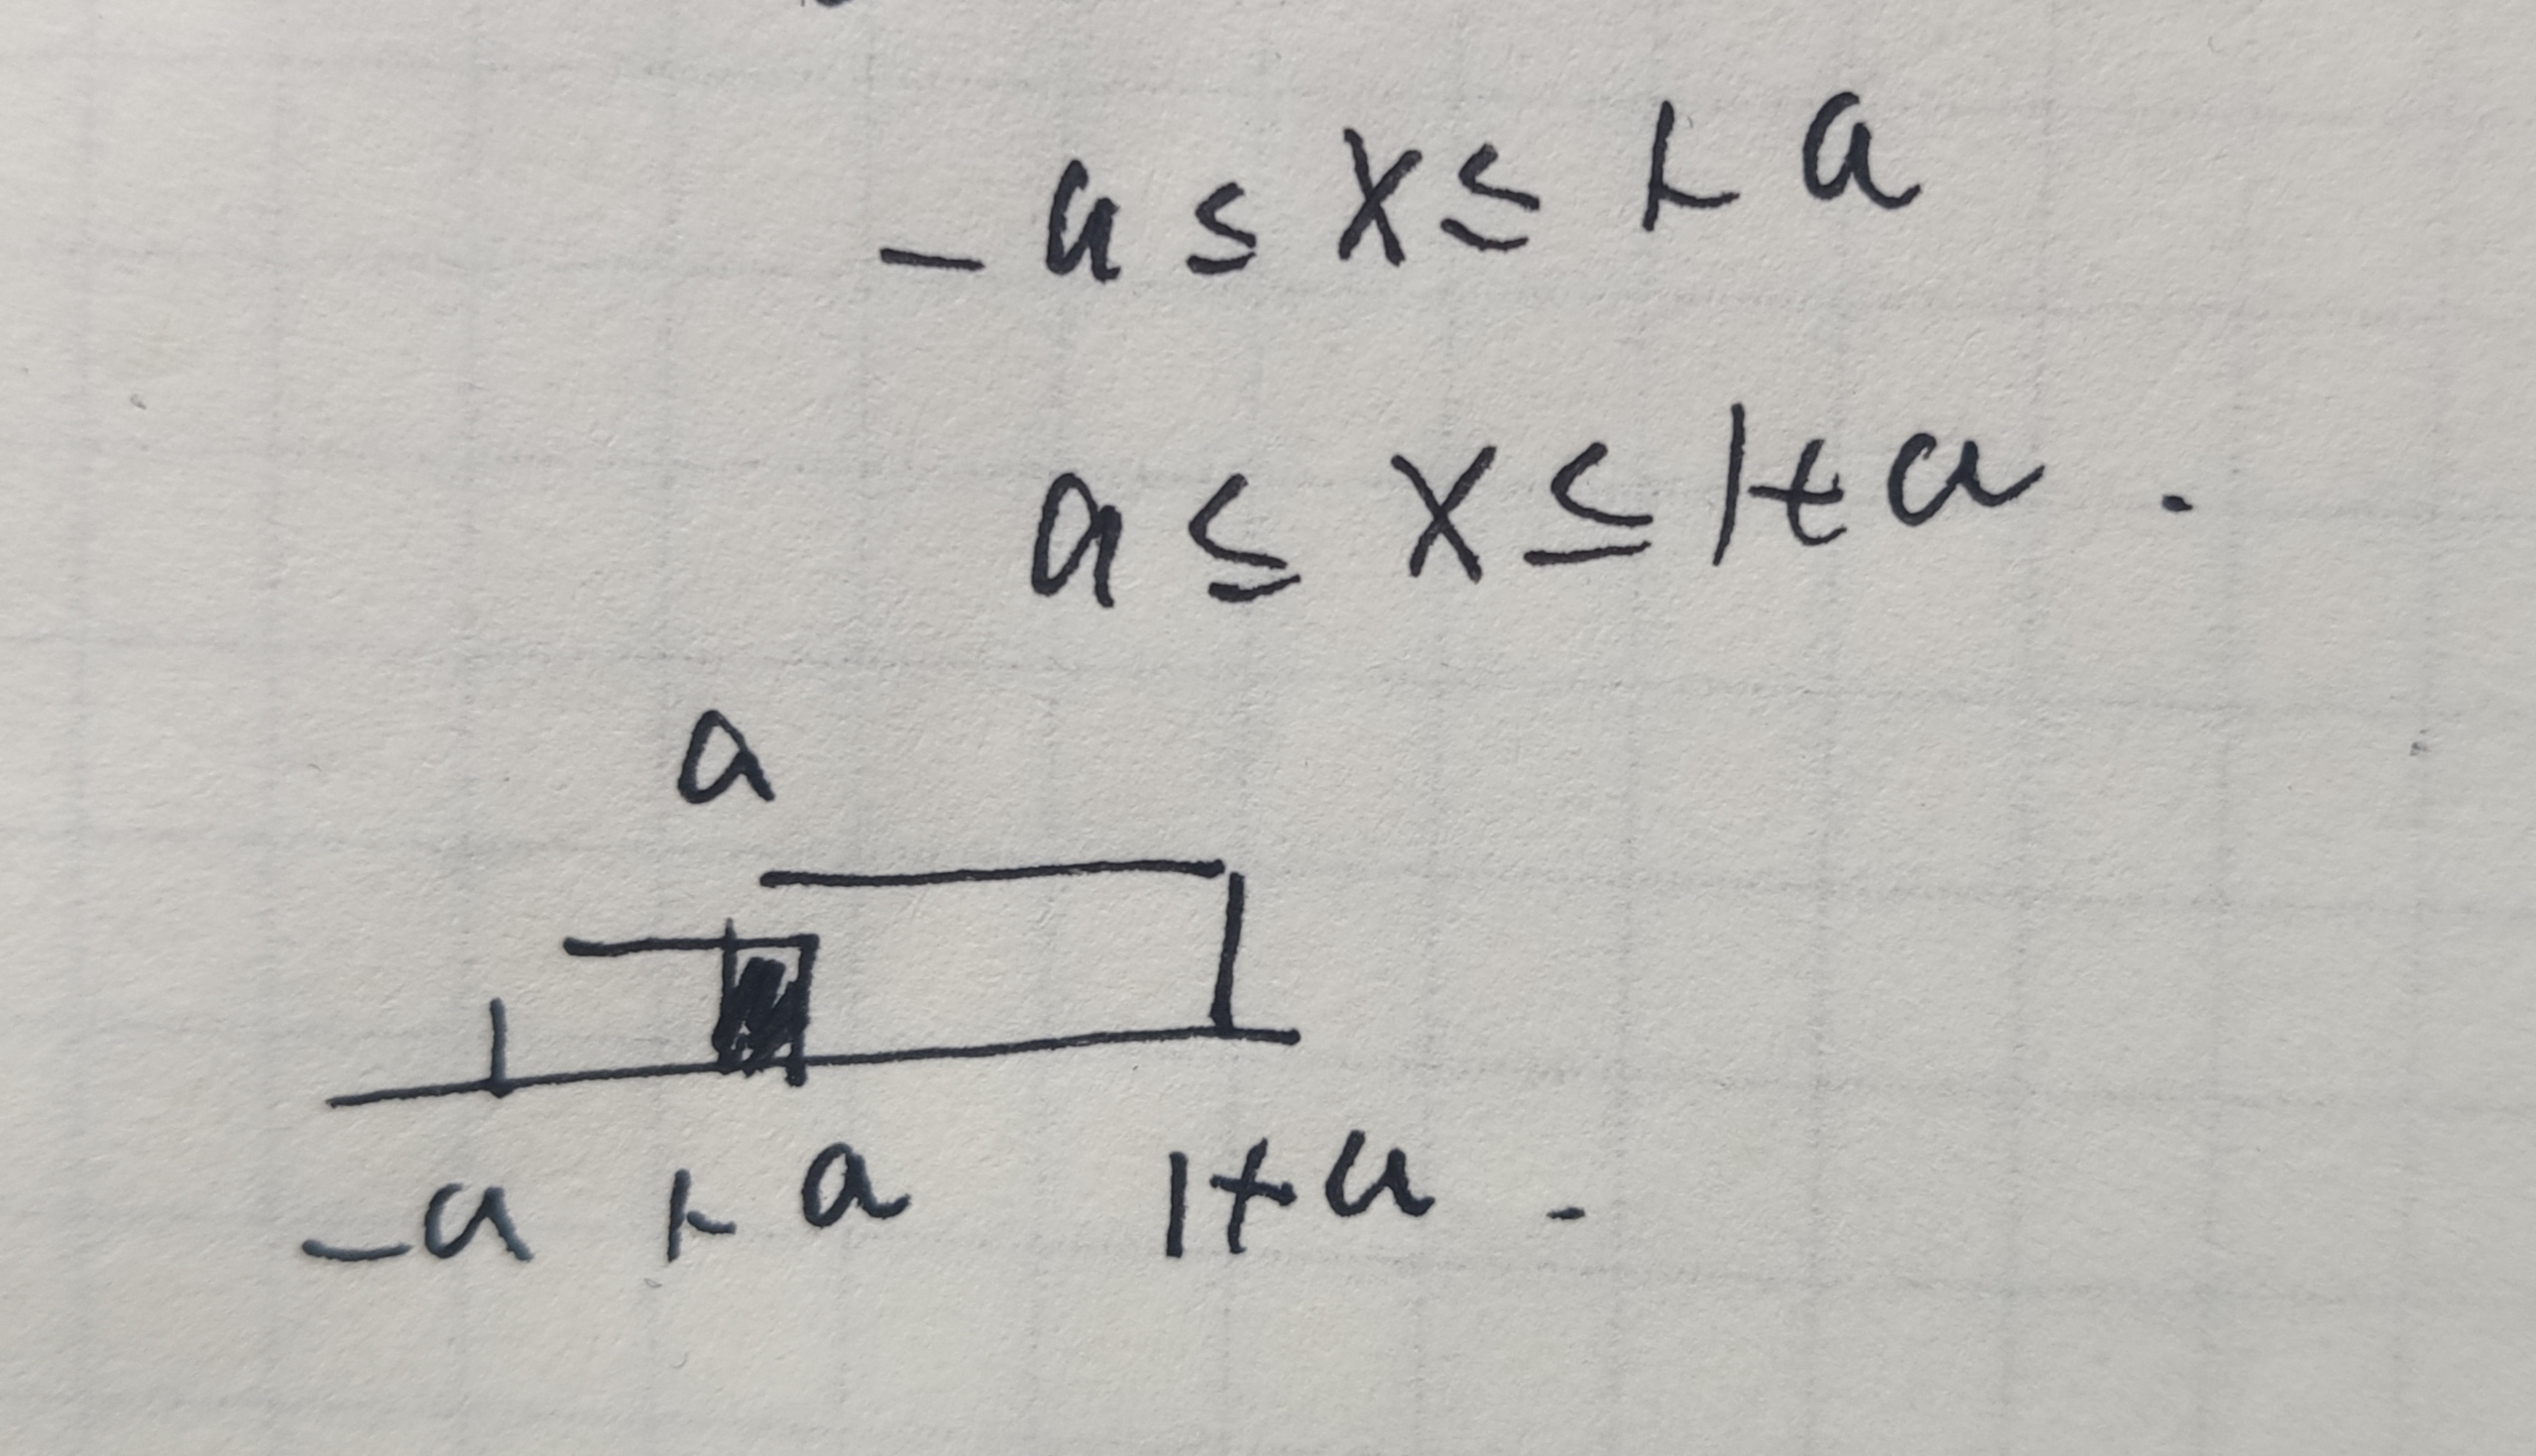 -a ≤ x ≤ 1-a
a ≤ x ≤ 1+a.
a
-a 1-a 1+a.